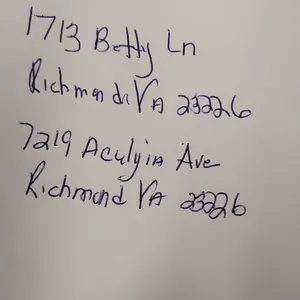 1713 Betty Ln
Richmond VA 23226
7219 Ave
Richmond VA 23226